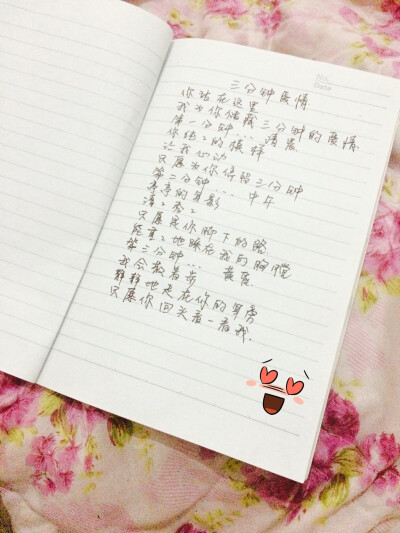 No.
Date
三分钟爱情
你站在这里
我为你储藏三分钟的爱情
第一分钟... 清晨
你的模样
让我心动
只愿为你停留三分钟
第二分钟.... 中午
的背影
清ミ秀ミ
只愿是你脚下的路
能重ミ地踩在我的胸膛
第三分钟... 黄昏
我会散着步
静静地走在你的耳旁
只愿你回头看一看我.